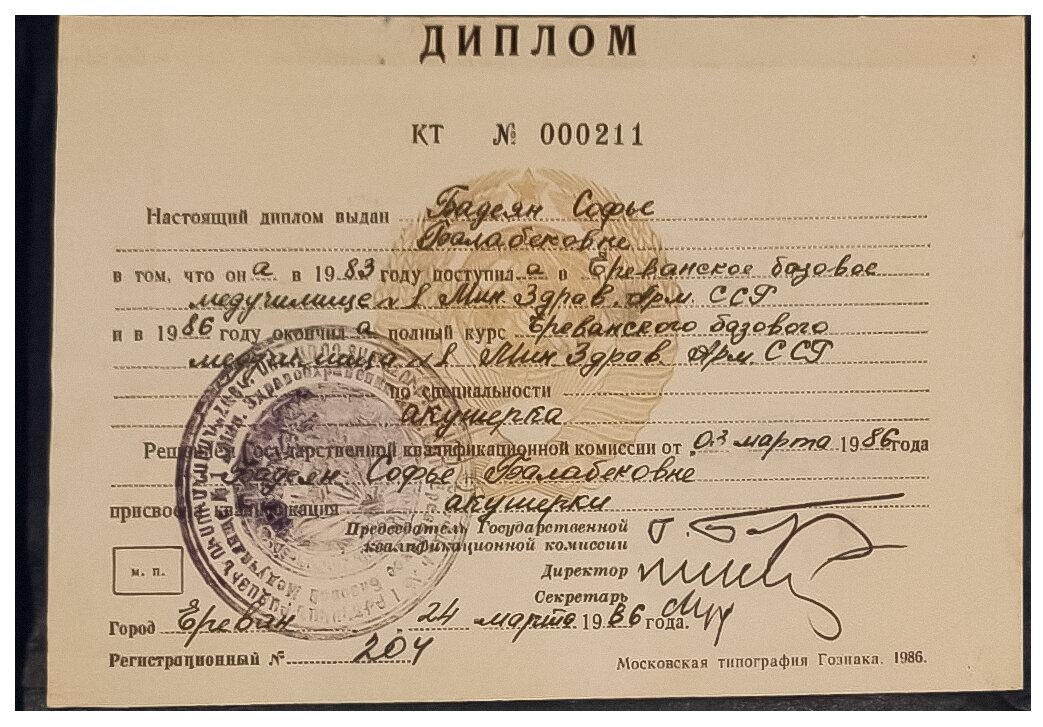 ДИПЛОМ
КТ № 000211
Настоящий диплом выдан Бадеян Софье
Балабековне
в том, что он а в 1983 году поступил а в Ереванское базовое
медучилище №1 Мин Здрав. Арм. ССР
и в 1986 году окончил а полный курс Ереванского базового
медучилища №1 Мин Здрав Арм. ССР
по специальности
акушерка
Решением Государственной квалификационной комиссии от „03 марта 1986 года
Бадеян Софье Балабековне
присвоена квалификация акушерки
Председатель Государственной
квалификационной комиссии
Директор
Секретарь
М. П.
Город Ереван 24 марта 1986 года.
Регистрационный № 204
Московская типография Гознака. 1986.